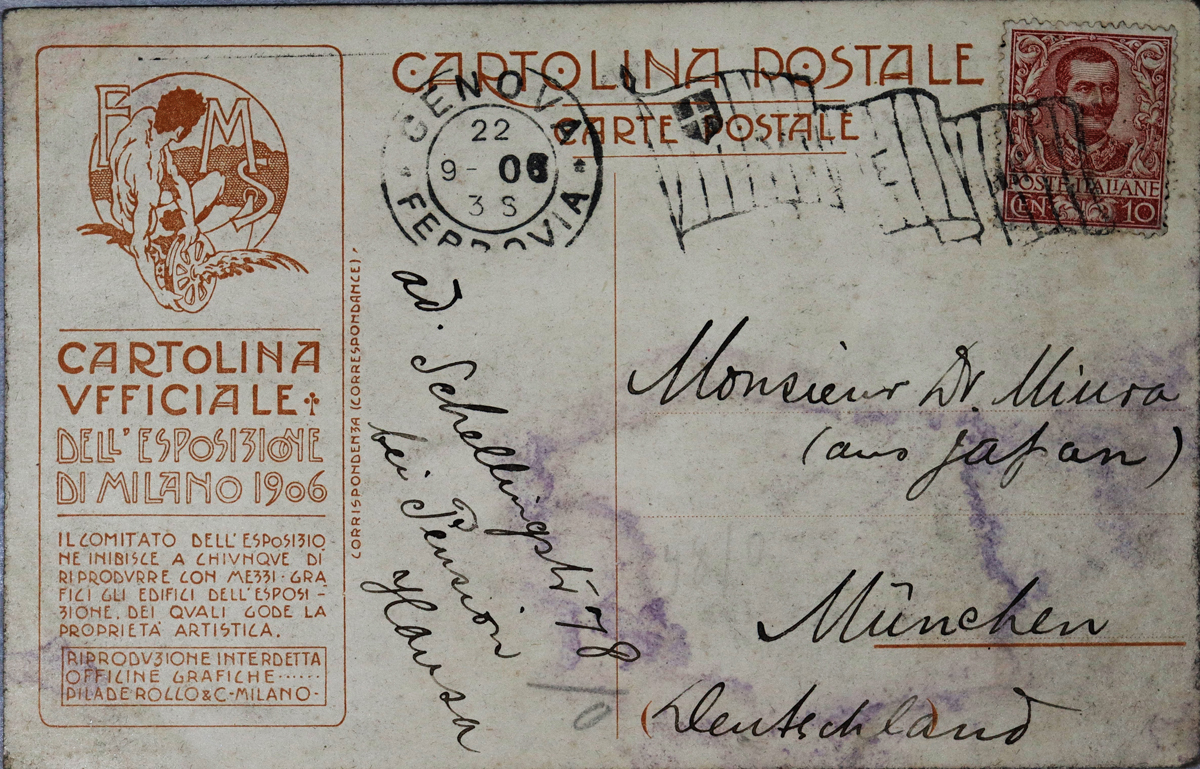 CARTOLINA POSTALE
CARTE POSTALE
GENOVA
22
9-06
3S
FERROVIA
POSTE ITALIANE
CENT. 10
E M S
CARTOLINA
VFFICIALE
DELL'ESPOSIZIONE
DI MILANO 1906
IL COMITATO DELL'ESPOSIZIO
NE INIBISCE A CHIVNQVE DI
RIPRODVRRE CON MEZZI·GRA
FICI GLI EDIFICI DELL'ESPOSI-
ZIONE, DEI QVALI GODE LA
PROPRIETA' ARTISTICA.
RIPRODVZIONE INTERDETTA
OFFICINE GRAFICHE······
PILADE ROCCO & C-MILANO-
CORRISPONDENZA (CORRESPONDANCE).
ad. Schellingstr 78
bei Pension
Monsieur Dr. Miura
(aus Japan)
München
(Deutschland